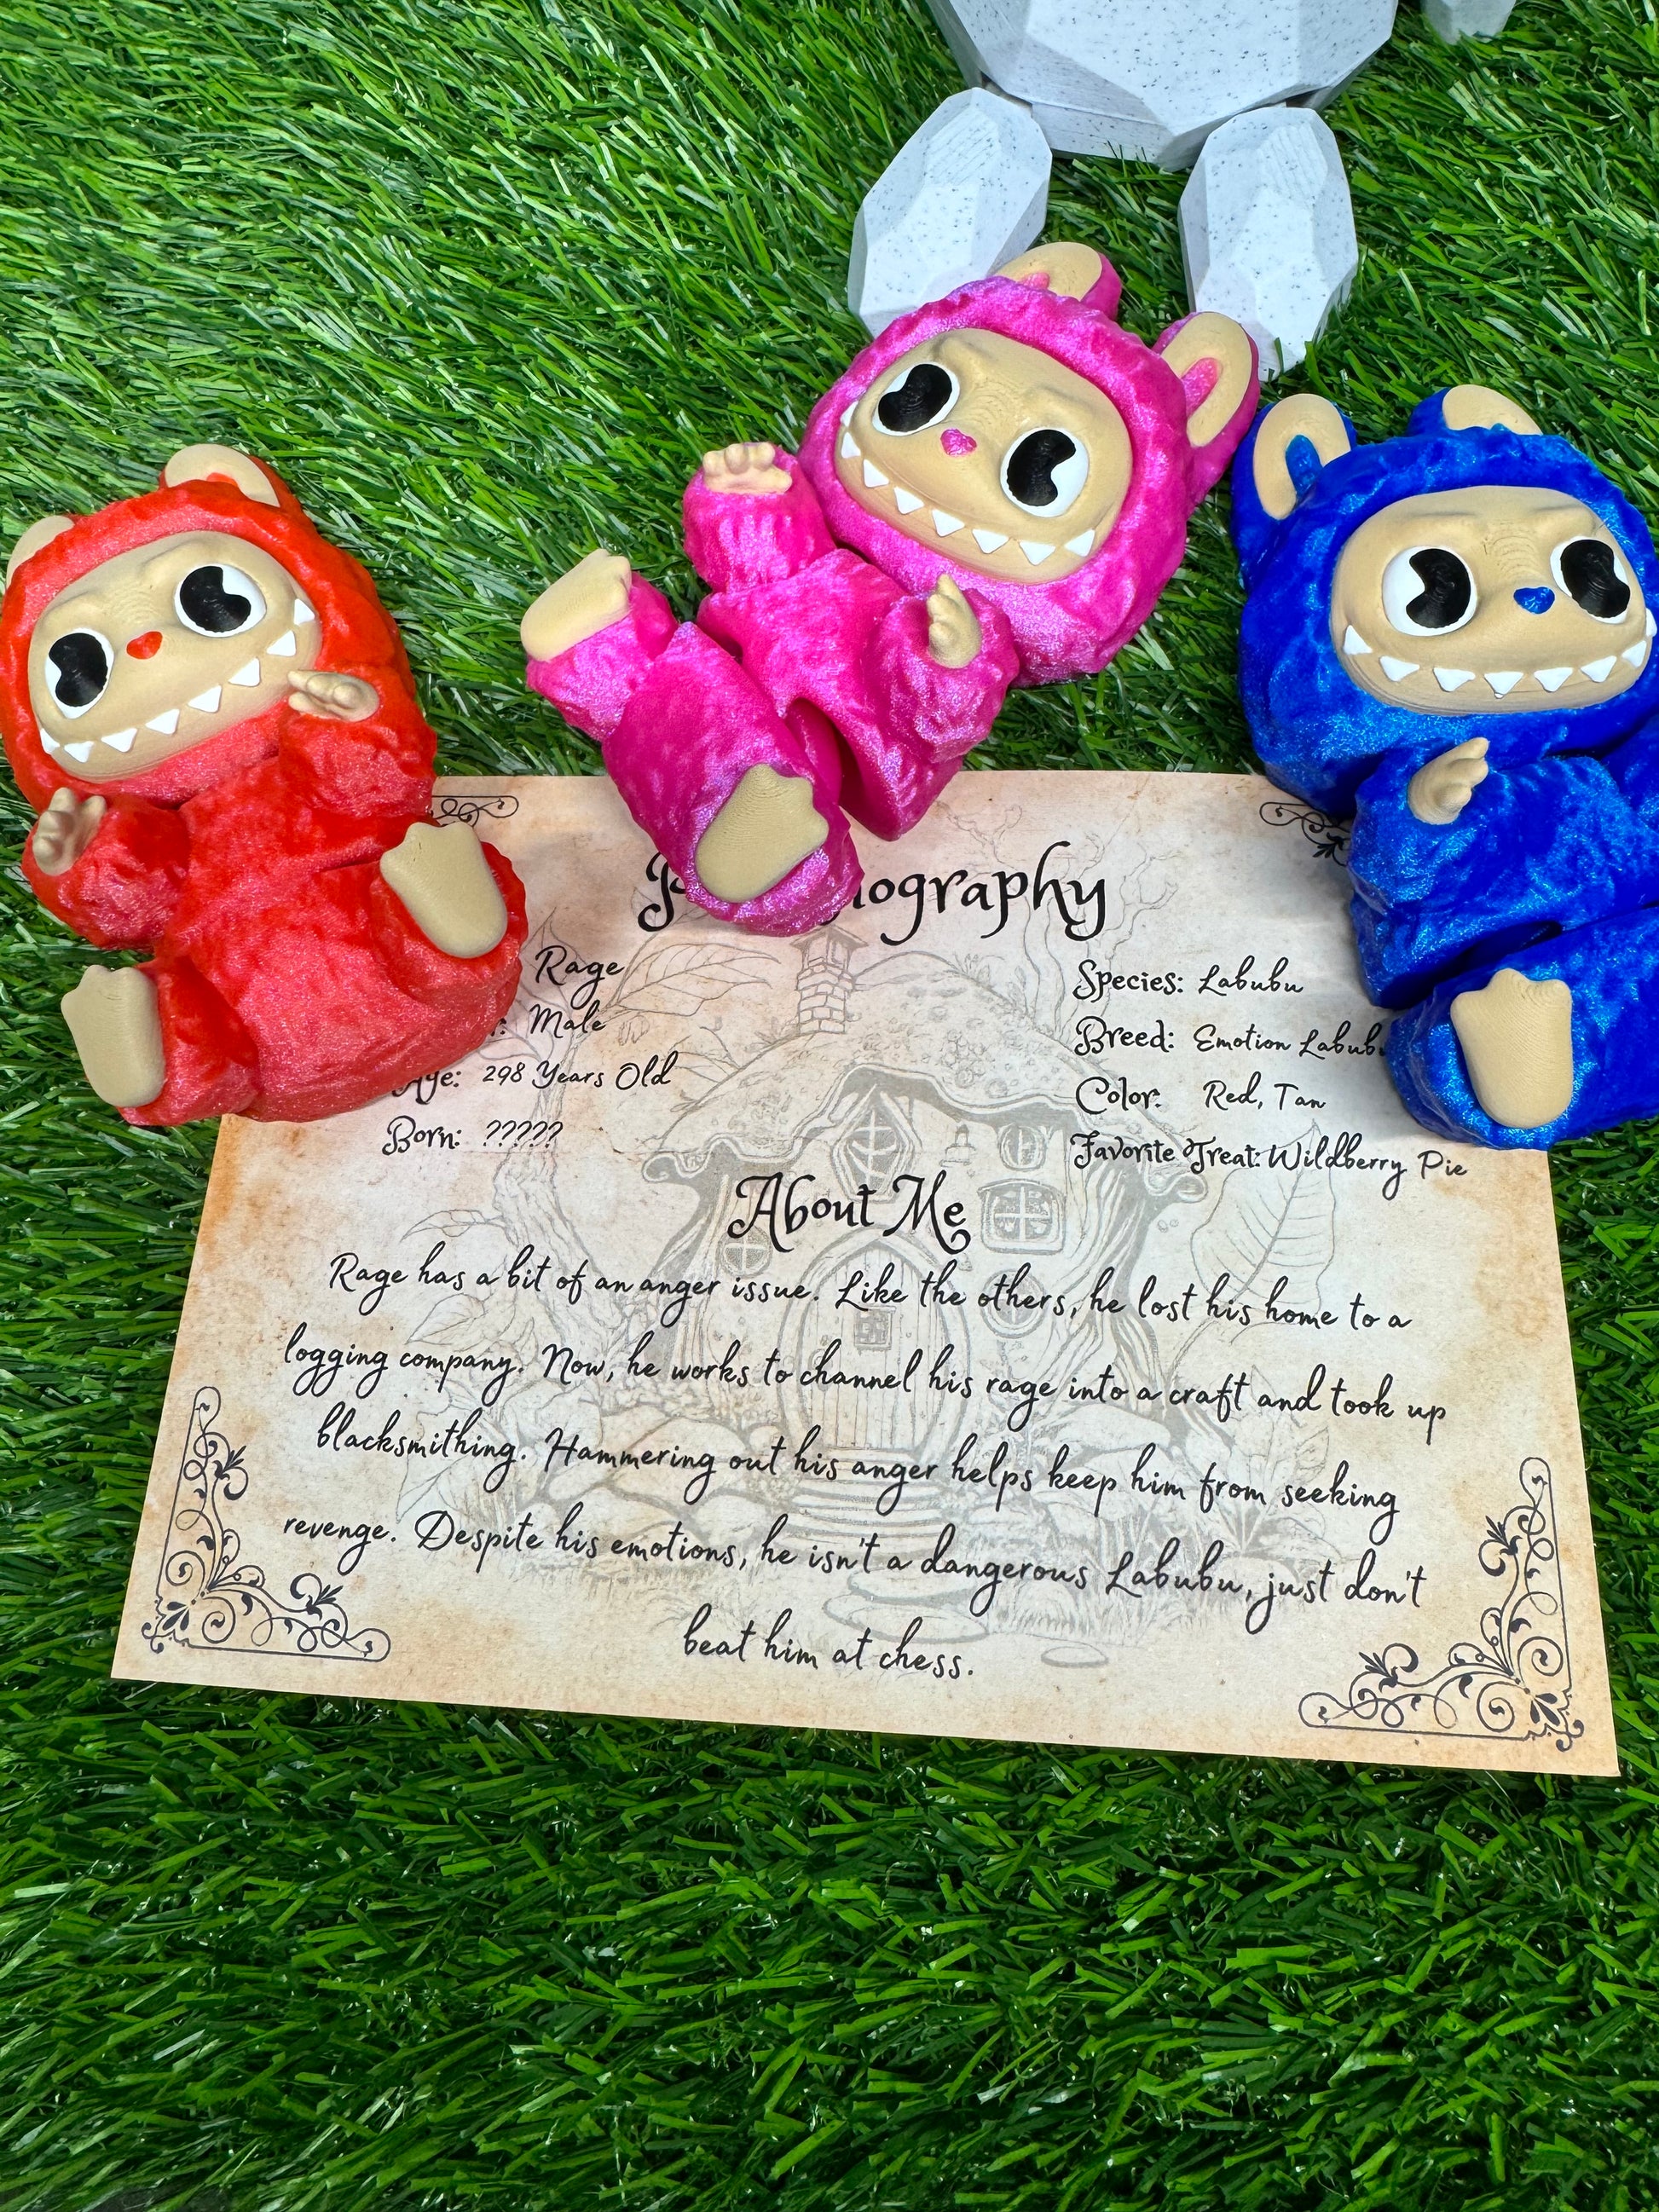 ography
Rage
Male
Age: 298 Years Old
Born: ?????
Species: Labubu
Breed: Emotion Labubu
Color: Red, Tan
Favorite Treat: Wildberry Pie
About Me
Rage has a bit of an anger issue. Like the others, he lost his home to a
logging company. Now, he works to channel his rage into a craft and took up
blacksmithing. Hammering out his anger helps keep him from seeking
revenge. Despite his emotions, he isn't a dangerous Labubu, just don't
beat him at chess.